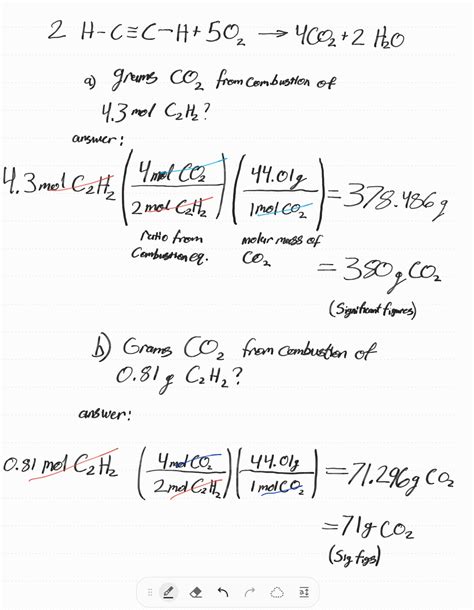 2 H-C≡C-H + 5O₂ → 4CO₂ + 2 H₂O
a) grams CO₂ from combustion of
4.3 mol C₂H₂?
answer:
4.3 mol C₂H₂ (4 mol CO₂ / 2 mol C₂H₂) (44.01g / 1 mol CO₂) = 378.486g
ratio from combustion eq.
molar mass of CO₂
= 380g CO₂
(Significant figures)
b) Grams CO₂ from combustion of
0.81 g C₂H₂?
answer:
0.81 mol C₂H₂ (4 mol CO₂ / 2 mol C₂H₂) (44.01g / 1 mol CO₂) = 71.296g CO₂
= 71g CO₂
(Sig figs)